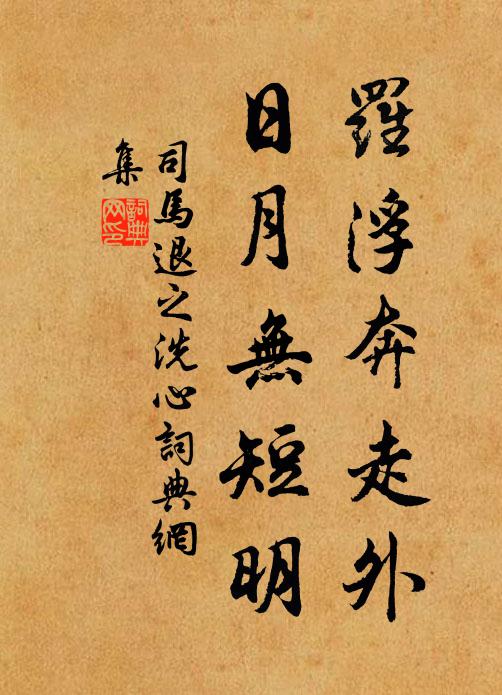 羅浮奔走外
日月無短明
司馬退之洗心詞典網
集
詞典
网印